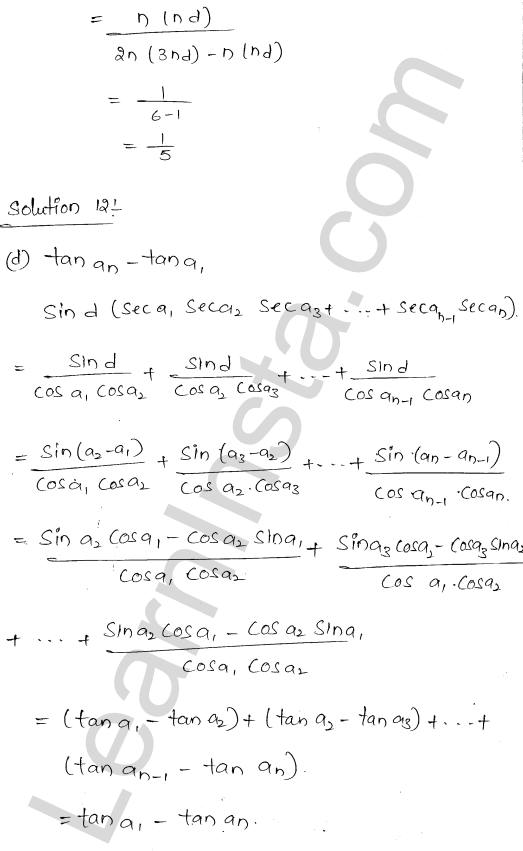 = n (nd) / 2n (3nd) - n (nd)
= 1 / 6-1
= 1/5
Solution 12:-
(d) tan aₙ - tan a₁
Sin d (Sec a₁ Sec a₂ Sec a₃ + ... + Sec aₙ₋₁ Sec aₙ).
= Sin d / Cos a₁ Cos a₂ + Sin d / Cos a₂ Cos a₃ + ... + Sin d / Cos aₙ₋₁ Cos aₙ
= Sin (a₂-a₁) / Cos a₁ Cos a₂ + Sin (a₃-a₂) / Cos a₂.Cos a₃ + ... + Sin (aₙ - aₙ₋₁) / Cos aₙ₋₁ .Cos aₙ.
= Sin a₂ Cos a₁ - Cos a₂ Sin a₁ / Cos a₁ Cos a₂ + Sin a₃ Cos a₂ - Cos a₃ Sin a₂ / Cos a₁.Cos a₂
+ ... + Sin a₂ Cos a₁ - Cos a₂ Sin a₁ / Cos a₁ Cos a₂
= (tan a₁ - tan a₂) + (tan a₂ - tan a₃) + ... +
(tan aₙ₋₁ - tan aₙ).
= tan a₁ - tan aₙ.
LearnInsta.com